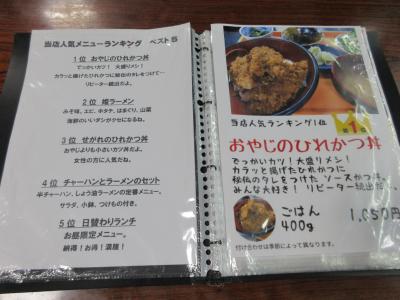 当店人気メニューランキング ベスト5
1位 おやじのひれかつ丼
でっかいカツ！ 大盛りメシ！
カラッと揚げたひれかつに秘伝のタレをつけて…
リピーター続出だよ。
2位 姫ラーメン
みそ味、エビ、ホタテ、はまぐり、山菜
海鮮のいいダシがクセになるね。
3位 せがれのひれかつ丼
おやじよりも小さいカツ丼だよ。
女性の方に人気だね。
4位 チャーハンとラーメンのセット
半チャーハン、しょう油ラーメンの定番メニュー。
サラダ、小鉢、つけもの付き。
5位 日替わりランチ
お昼限定メニュー。
納得！お得！満腹！
当店人気ランキング1位
第1位
おやじのひれかつ丼
でっかいカツ！大盛りメシ！
カラッと揚げたひれかつに
秘伝のタレをつけた ソースかつ丼。
みんな大好き！ リピーター続出だよ。
ごはん
400g
1,050円
付け合わせは季節によって異なります。